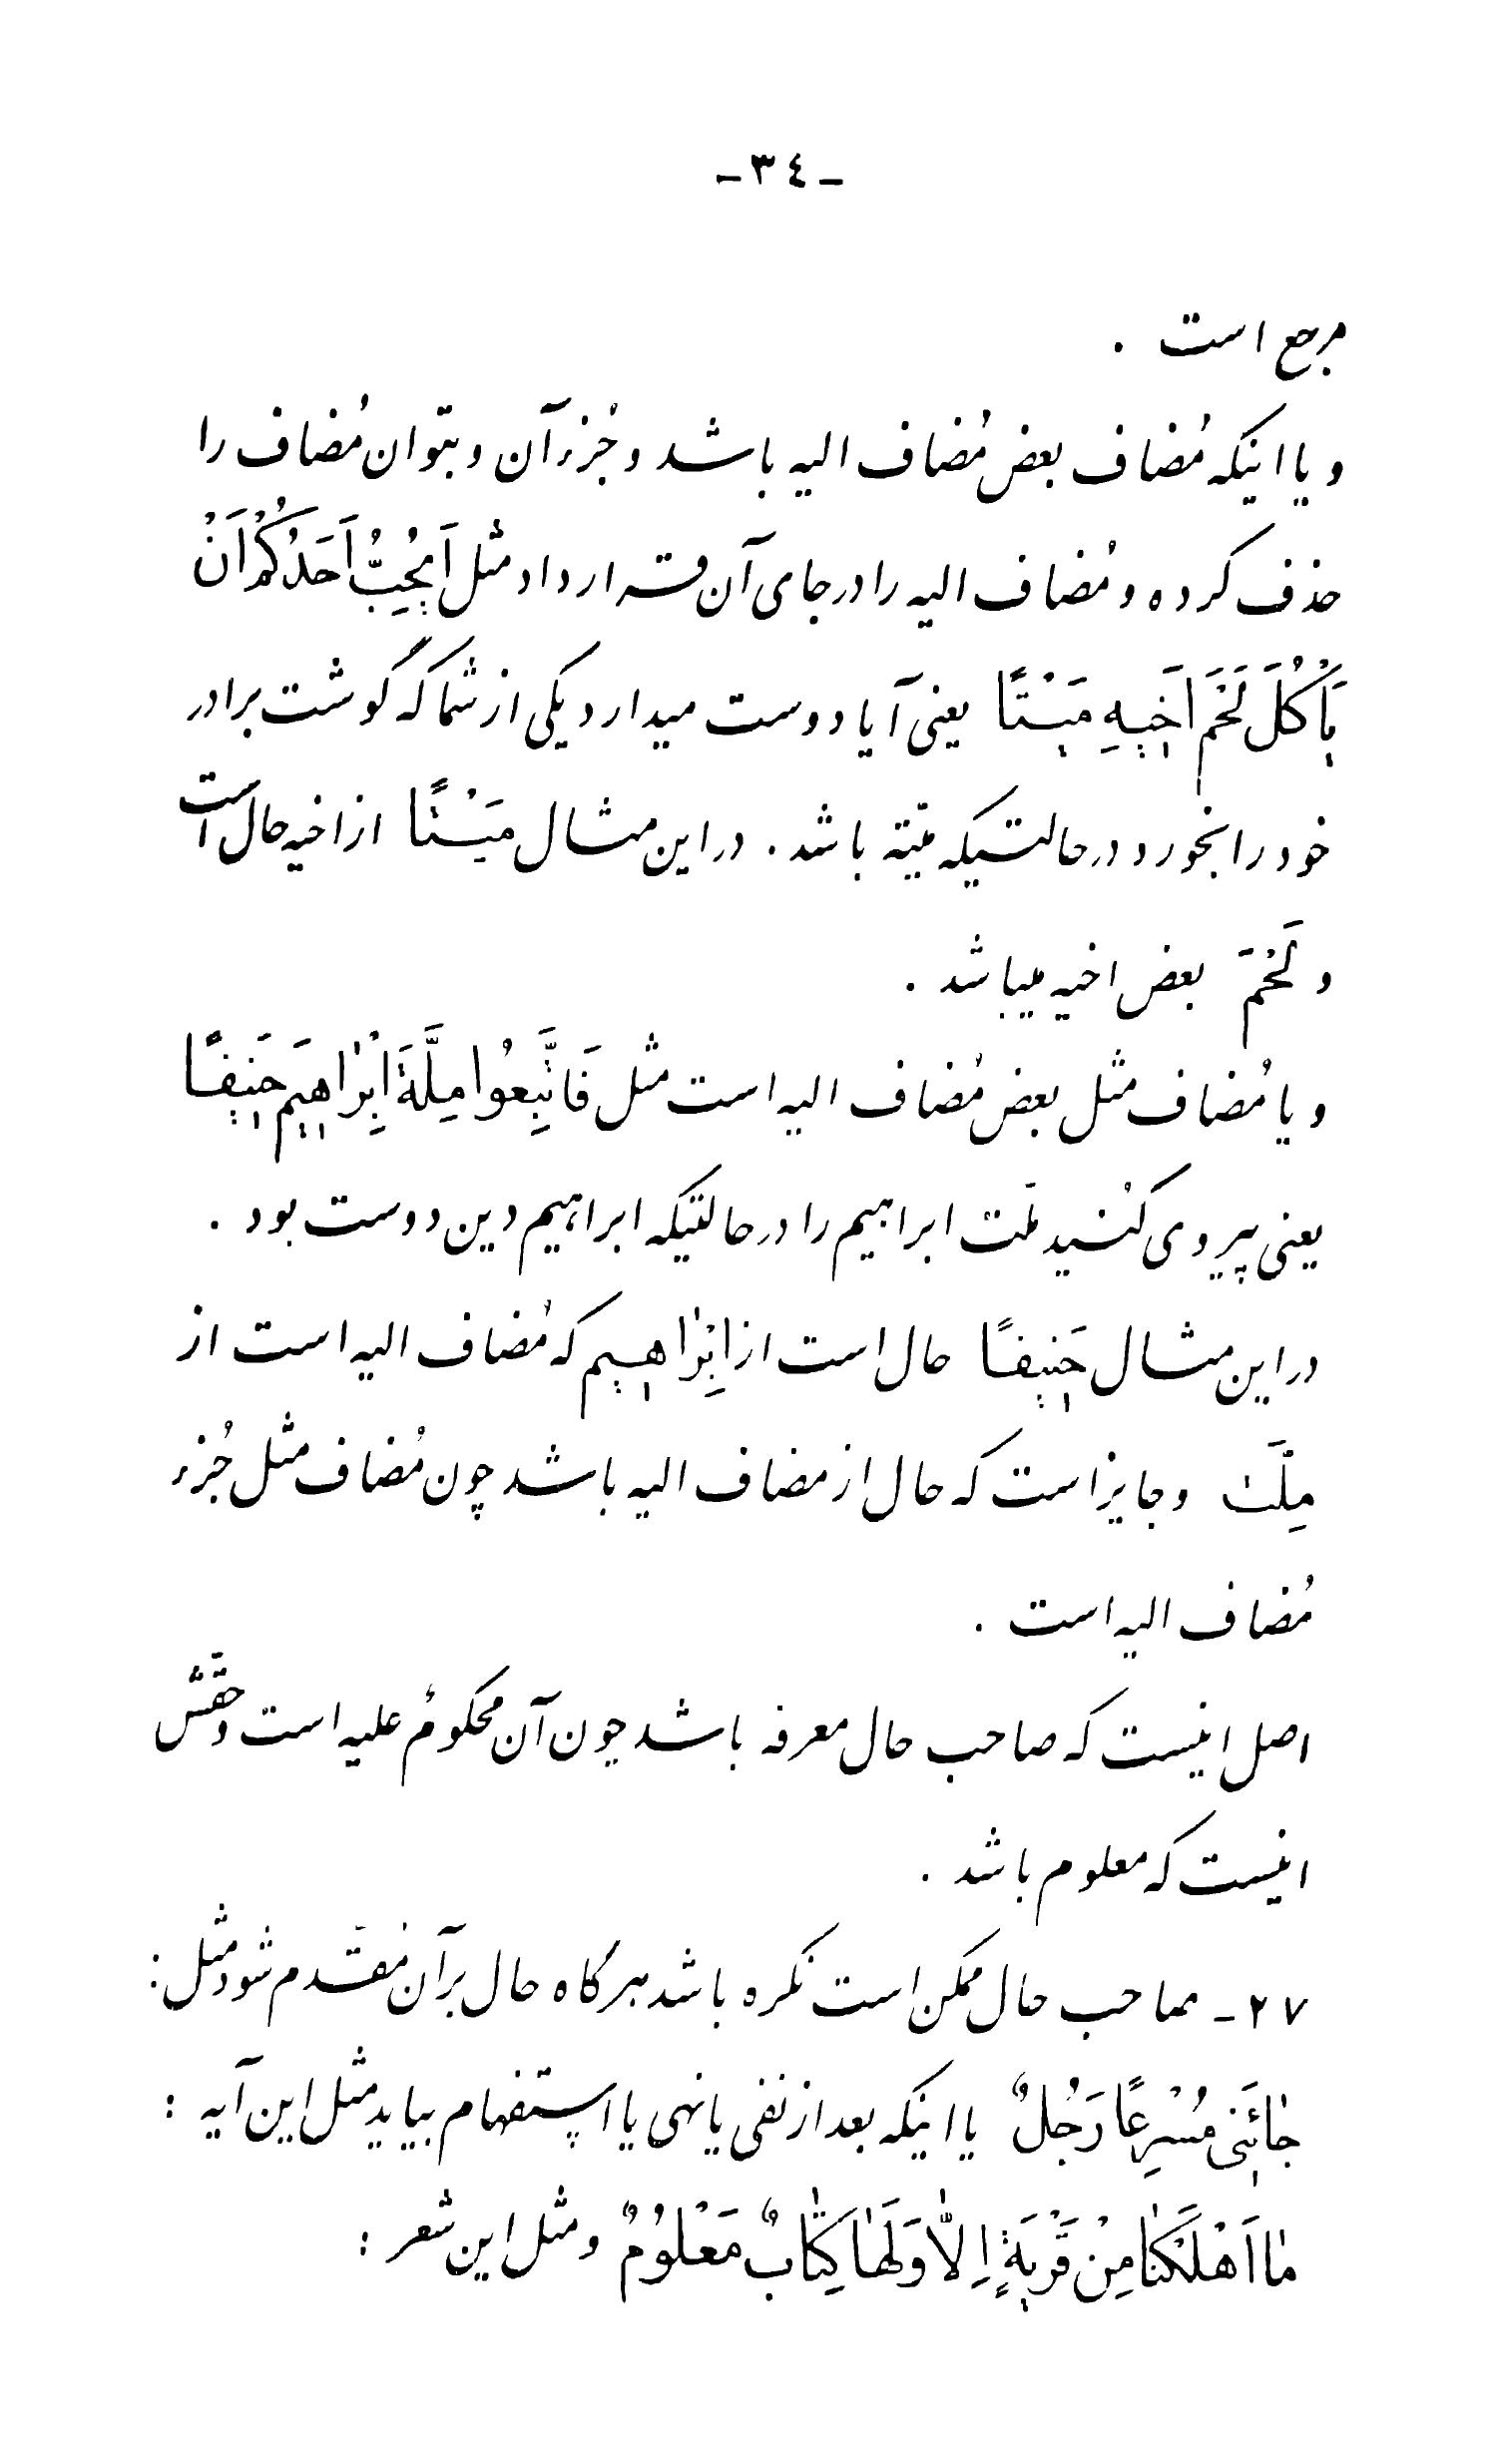 -٣٤-
مرجع است .
و یا اینکه مُضاف بعض مُضاف الیه باشد و جُزء آن و بتوان مُضاف را
حذف کرده و مُضاف الیه را در جای آن قرار داد مثل اَیُحِبُّ اَحَدُکُمْ اَنْ
یَأْکُلَ لَحْمَ اَخیهِ مَیْتًا یعنی آیا دوست میدارد یکی از شما که گوشت برادر
خود را بخورد در حالتیکه میّته باشد . در این مثال مَیْتًا از اخیه حال است
و لَحْمَ بعض اخیه میباشد .
و یا مُضاف مثل بعض مُضاف الیه است مثل فَاتَّبِعُوا مِلَّةَ اِبْرٰاهیمَ حَنیفًا
یعنی پیروی کنید ملّت ابراهیم را در حالتیکه ابراهیم دین دوست بود .
در این مثال حَنیفًا حال است از اِبْرٰاهیم که مُضاف الیه است از
مِلَّت و جایز است که حال از مضاف الیه باشد چون مُضاف مثل جُزء
مُضاف الیه است .
اصل اینست که صاحب حال معرفه باشد چون آن محکومٌ علیه است و حقّش
اینست که معلوم باشد .
٢٧ - صاحب حال ممکن است نکره باشد هرگاه حال برآن مُقدّم شود مثل :
جٰائَنی مُسْرِعًا رَجُلٌ یا اینکه بعد از نفی یا نهی یا استفهام بیاید مثل این آیه :
مٰا اَهْلَکْنٰا مِنْ قَرْیَةٍ اِلاّٰ وَلَهٰا کِتٰابٌ مَعْلُومٌ و مثل این شعر :